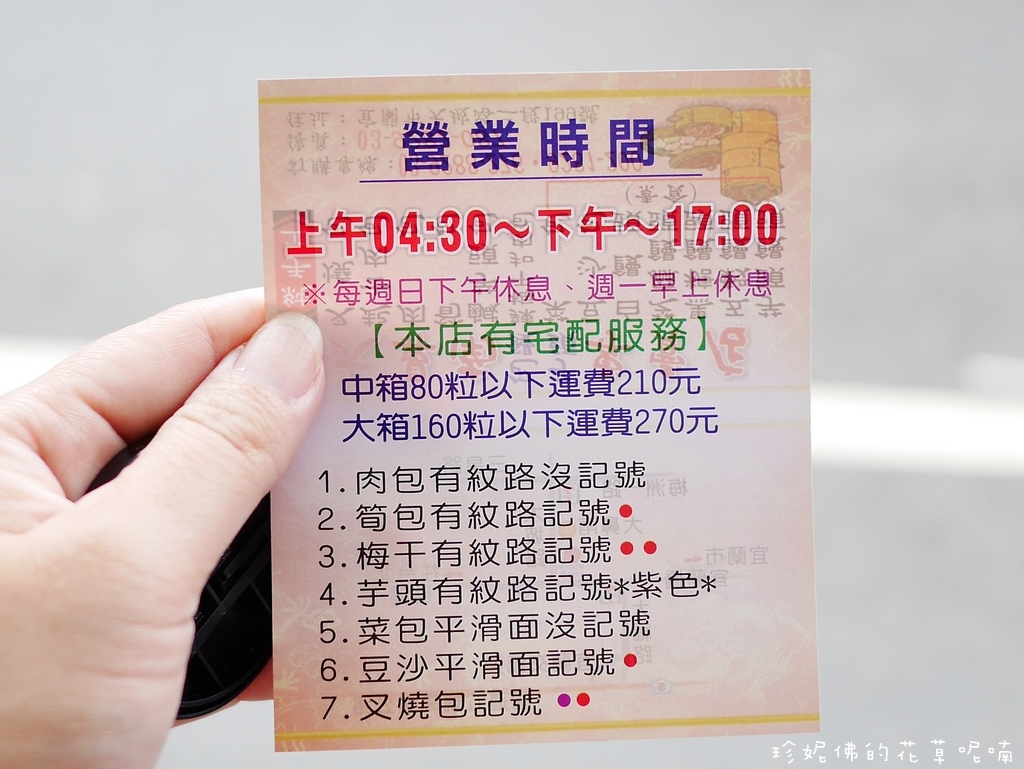 營業時間
上午04:30～下午～17:00
※每週日下午休息、週一早上休息
【本店有宅配服務】
中箱80粒以下運費210元
大箱160粒以下運費270元
1.肉包有紋路沒記號
2.筍包有紋路記號●
3.梅干有紋路記號●●
4.芋頭有紋路記號*紫色*
5.菜包平滑面沒記號
6.豆沙平滑面記號●
7.叉燒包記號●●
珍妮佛的花草呢喃